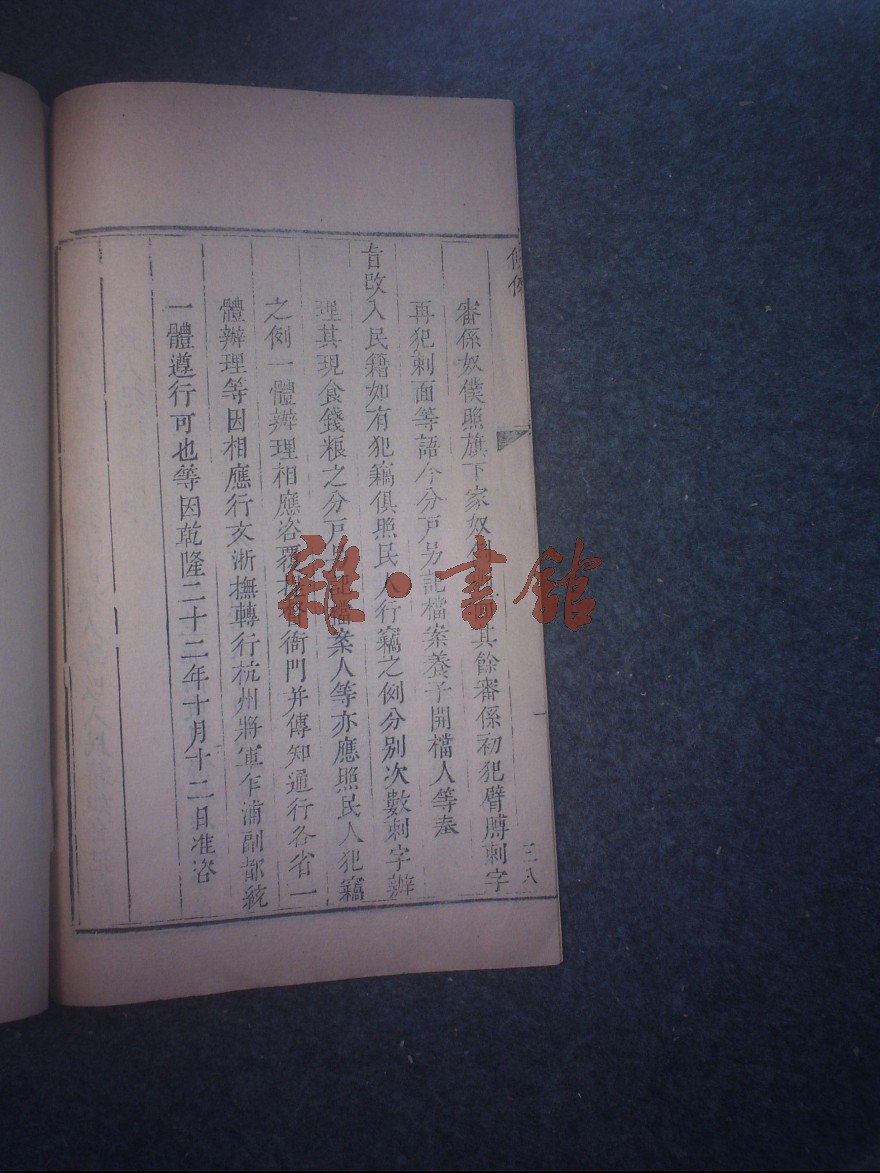 條例
審係奴僕照旗下家奴例其餘審係初犯臂膊刺字
再犯刺面等語今分戶另記檔案養子開檔人等奉
旨改入民籍如有犯竊俱照民人行竊之例分别次數刺字辦
理其現食錢粮之分戶另記檔案人等亦應照民人犯竊
之例一體辦理相應咨覆提督衙門并傳知通行各省一
體辦理等因相應行文浙撫轉行杭州將軍乍浦副都統
一體遵行可也等因乾隆二十二年十月十二日准咨
三八
雜·書館